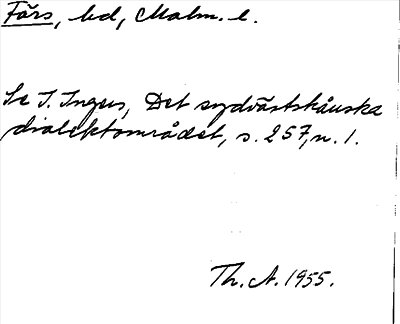 Färs, hd, Malm. l.
Se I. Ingers, Det sydvästskånska
dialektområdet, s. 257, n. 1.
Th. A. 1955.